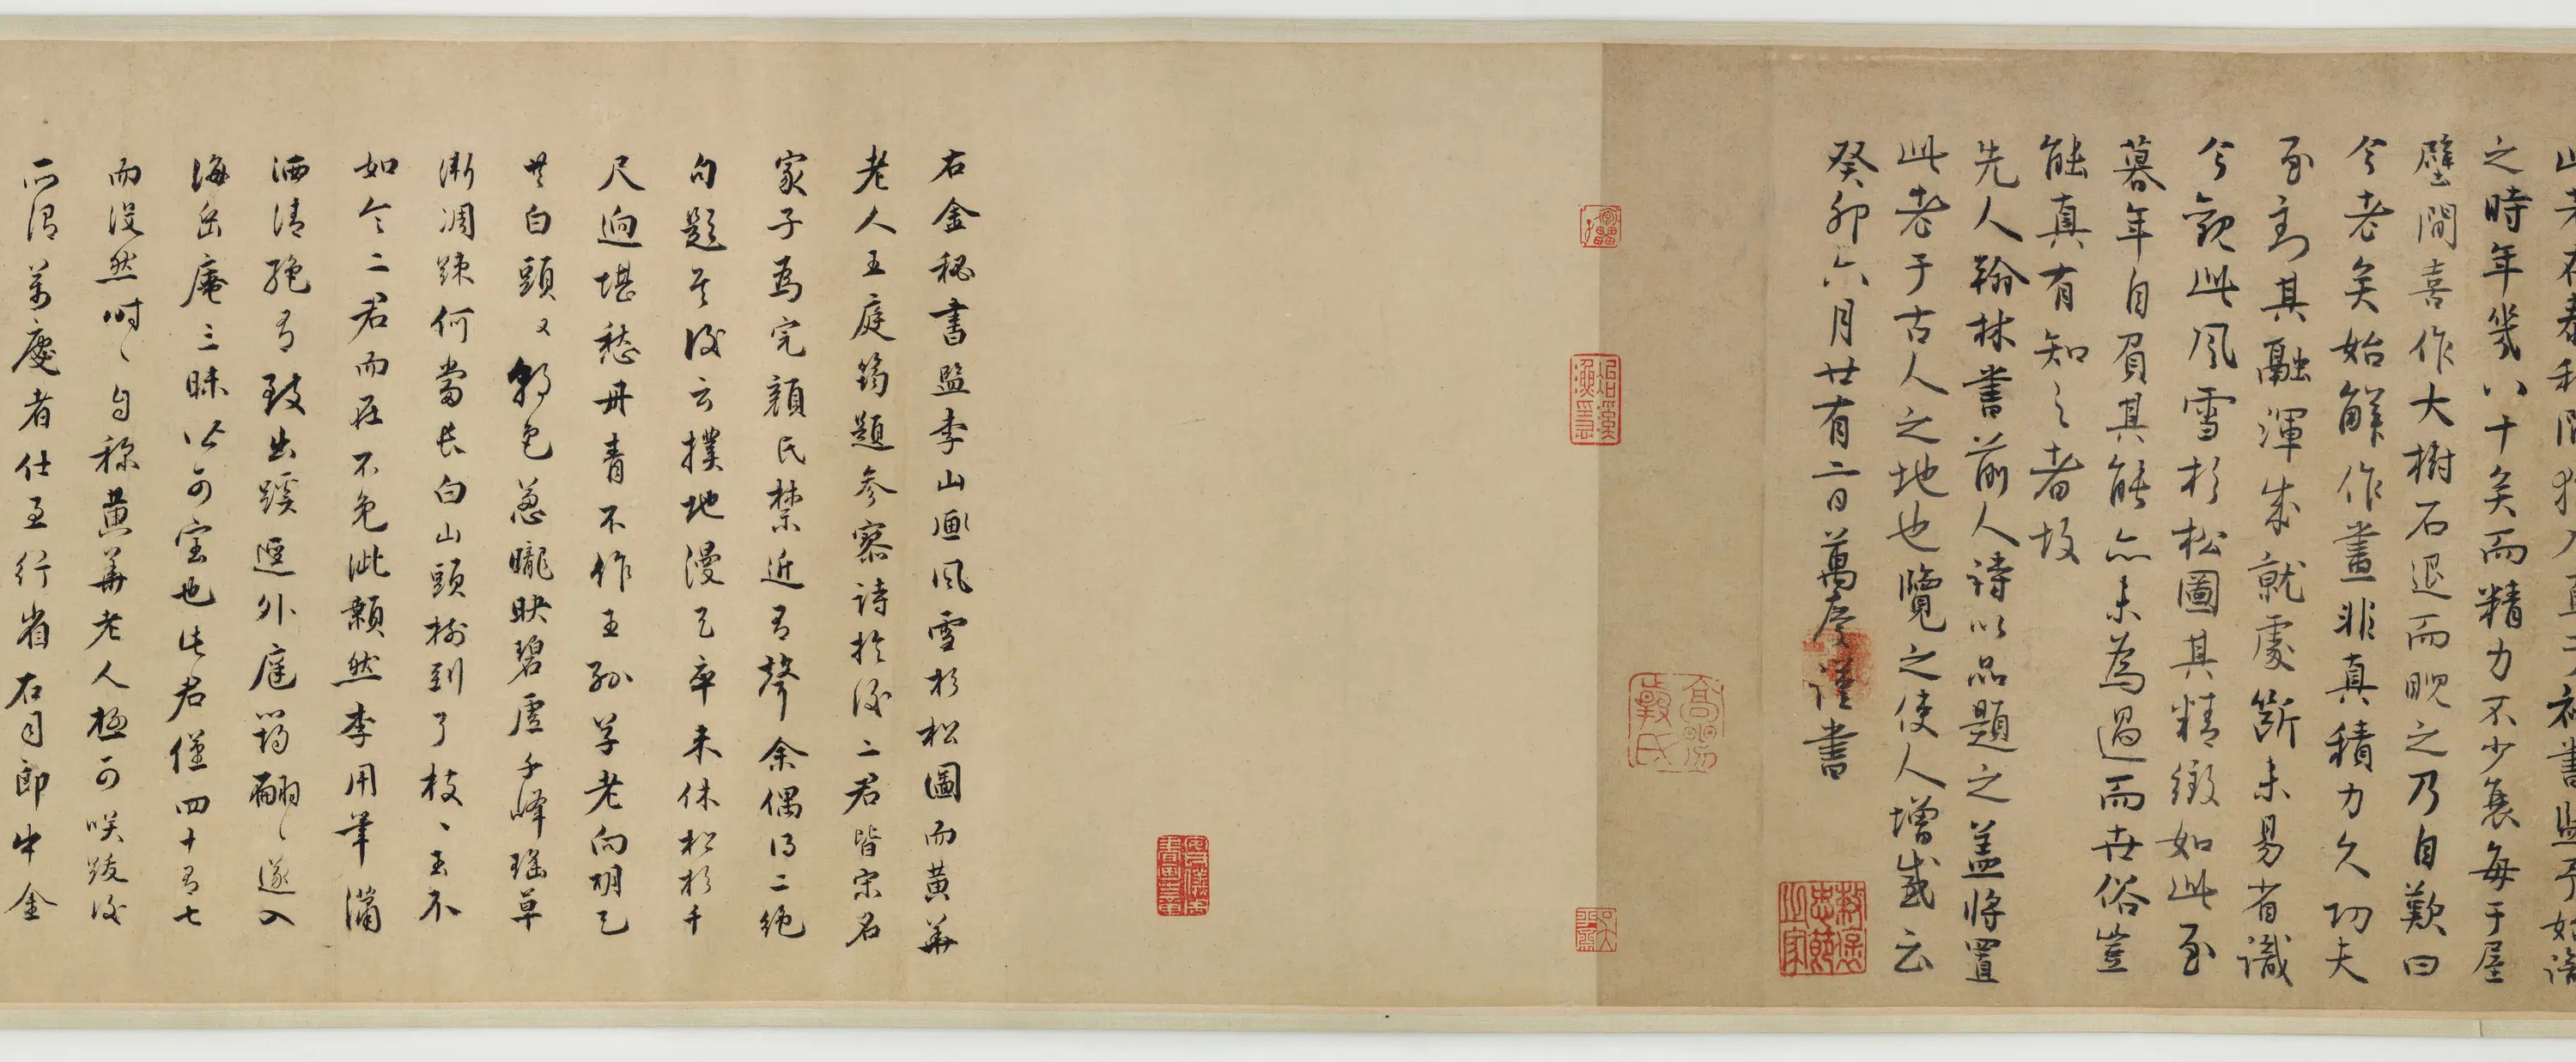 山老在泰和間猶入直于秘書監予始識
之時年幾八十矣而精力不少衰每于屋
壁間喜作大樹石退而睨之乃自歎曰
今老矣始解作畫非真積力久功夫
至到其融渾成就處斷未易省識
今觀此風雪杉松圖其精緻如此至
暮年自負其能亦未為過而世俗豈
能真有知之者故
先人翰林書前人詩以品題之蓋將置
此老于古人之地也覽之使人增感云
癸卯六月廿有二日萬慶謹書
右金秘書監李山畫風雪杉松圖而黃華
老人王庭筠題參寥詩於後二君皆宋名
家子為完顏氏禁近有聲余偶得二絕
句題其後云撲地漫天卒未休松杉千
尺迥堪愁丹青不作王孫草老向胡天
共白頭又朝色蔥曨映碧虛千峰瑤草
漸凋疎何當長白山頭樹到了枝枝玉不
如令二君而在不免泚顙然李用筆瀟
洒清絕有致出蹊逕外庭筠翩翩遂入
海岳庵三昧皆可寶也庭君僅四十有七
而沒然時時自稱黃華老人極可咲跋後
所謂萬慶者仕至行省右司郎中金